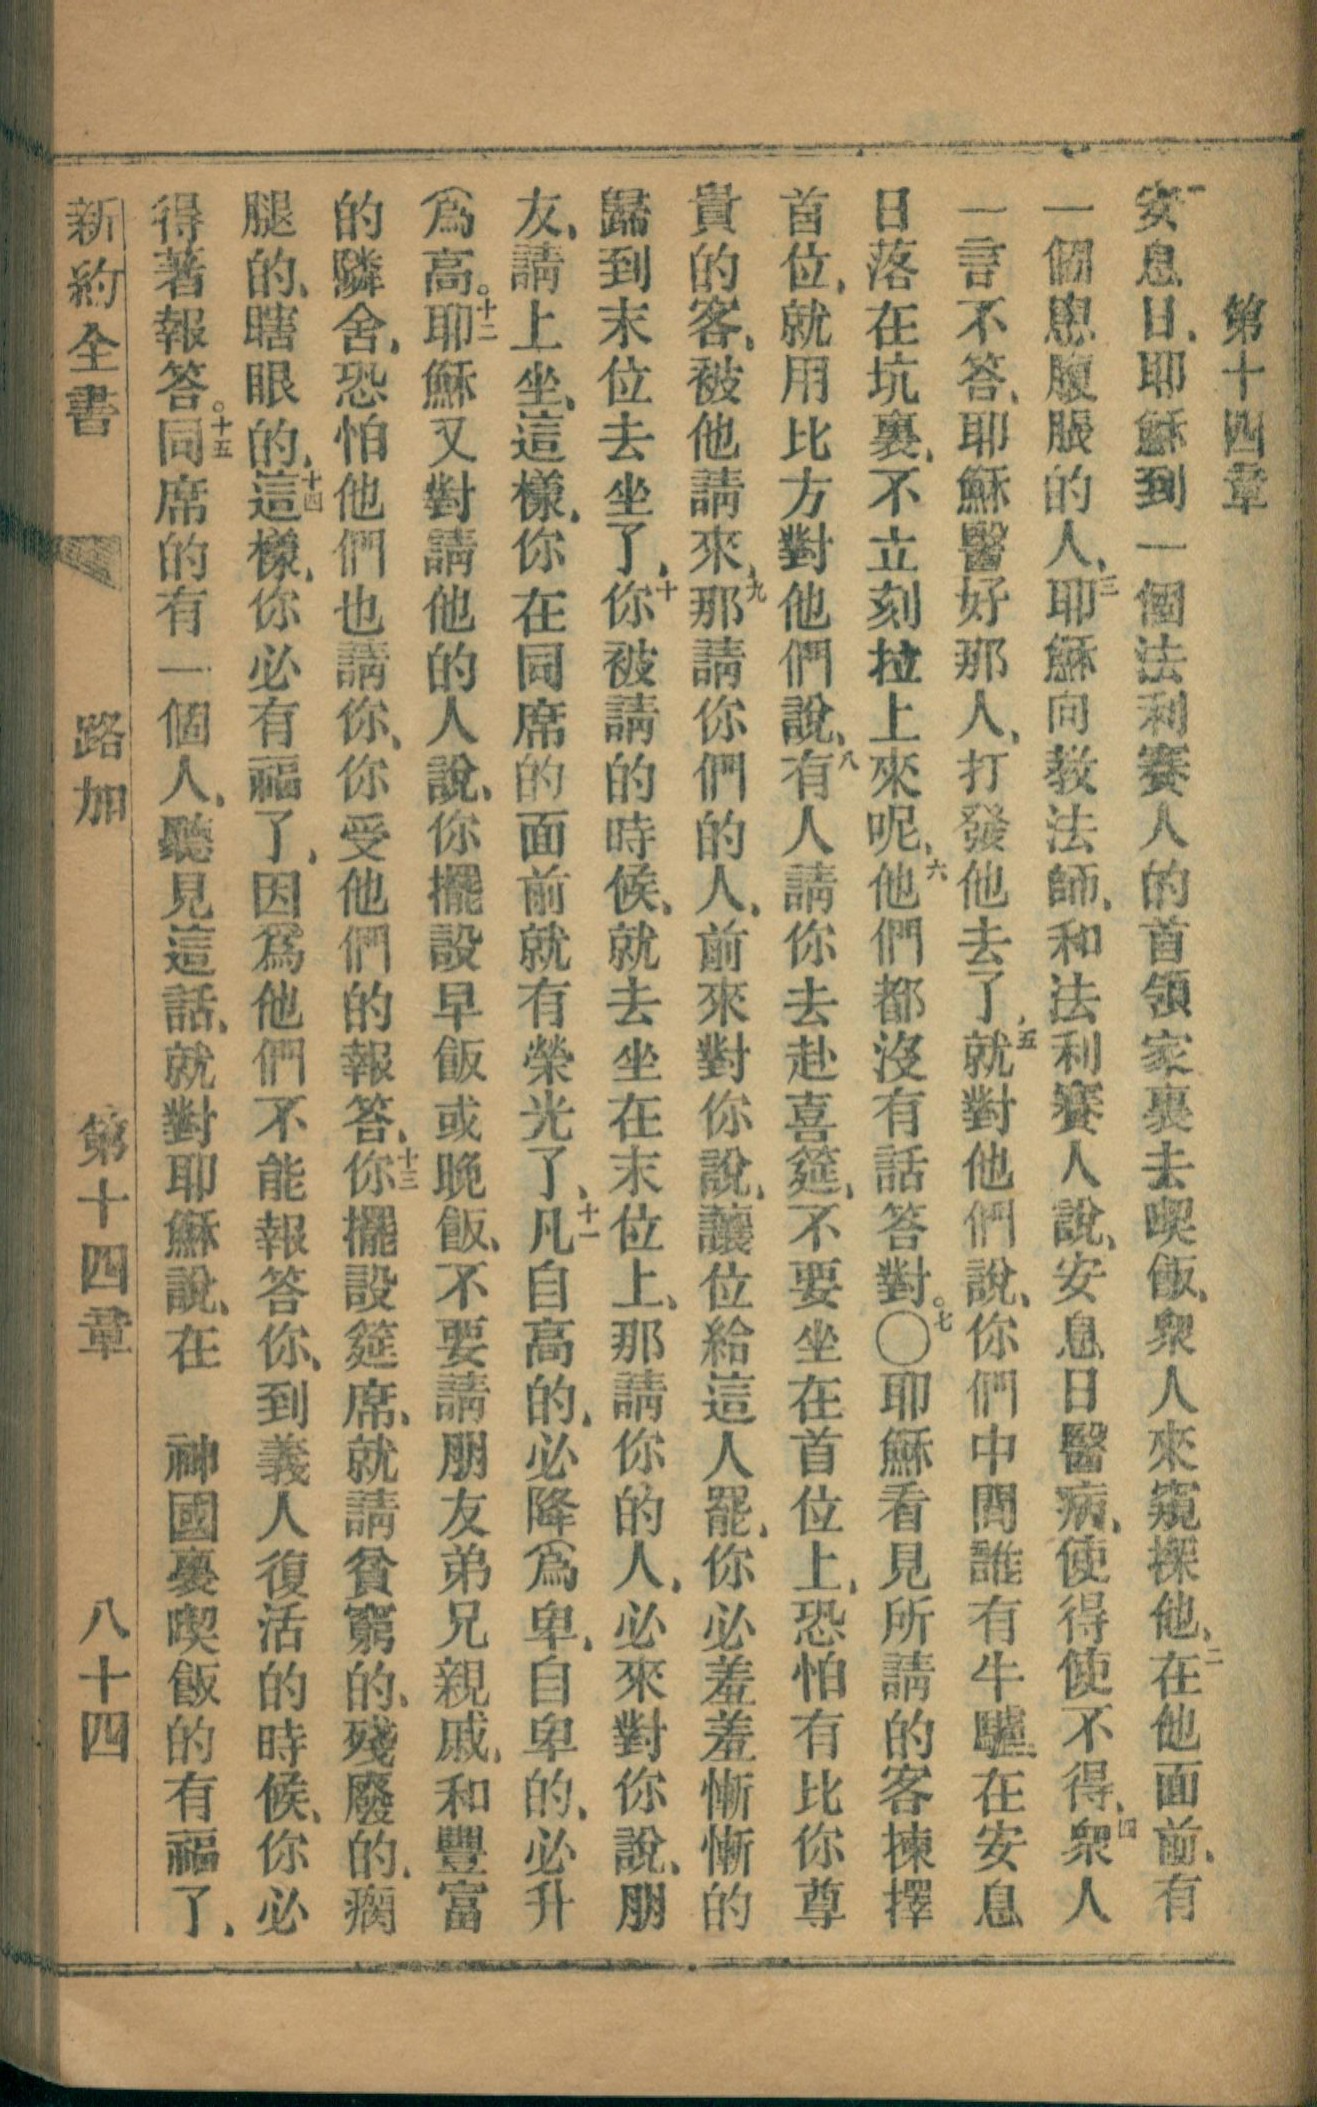 第十四章
一安息日、耶穌到一個法利賽人的首領家裏去喫飯、衆人來窺探他、二在他面前、有
一個患腹脹的人、三耶穌向教法師、和法利賽人說、安息日醫病、使得使不得、四衆人
一言不答、耶穌醫好那人、打發他去了、五就對他們說、你們中間誰有牛驢、在安息
日落在坑裏、不立刻拉上來呢、六他們都沒有話答對。七〇耶穌看見所請的客揀擇
首位、就用比方對他們說、八有人請你去赴喜筵、不要坐在首位上、恐怕有比你尊
貴的客、被他請來、九那請你們的人、前來對你說、讓位給這人罷、你必羞羞慚慚的
歸到末位去坐了、十你被請的時候、就去坐在末位上、那請你的人、必來對你說、朋
友、請上坐、這樣、你在同席的面前就有榮光了、十一凡自高的、必降爲卑、自卑的、必升
爲高。十二耶穌又對請他的人說、你擺設早飯或晚飯、不要請朋友弟兄親戚、和豐富
的隣舍、恐怕他們也請你、你受他們的報答、十三你擺設筵席、就請貧窮的、殘廢的、瘸
腿的、瞎眼的、十四這樣、你必有福了、因爲他們不能報答你、到義人復活的時候、你必
得著報答。十五同席的有一個人、聽見這話、就對耶穌說、在　神國裏喫飯的有福了、
新約全書　路加　第十四章　八十四